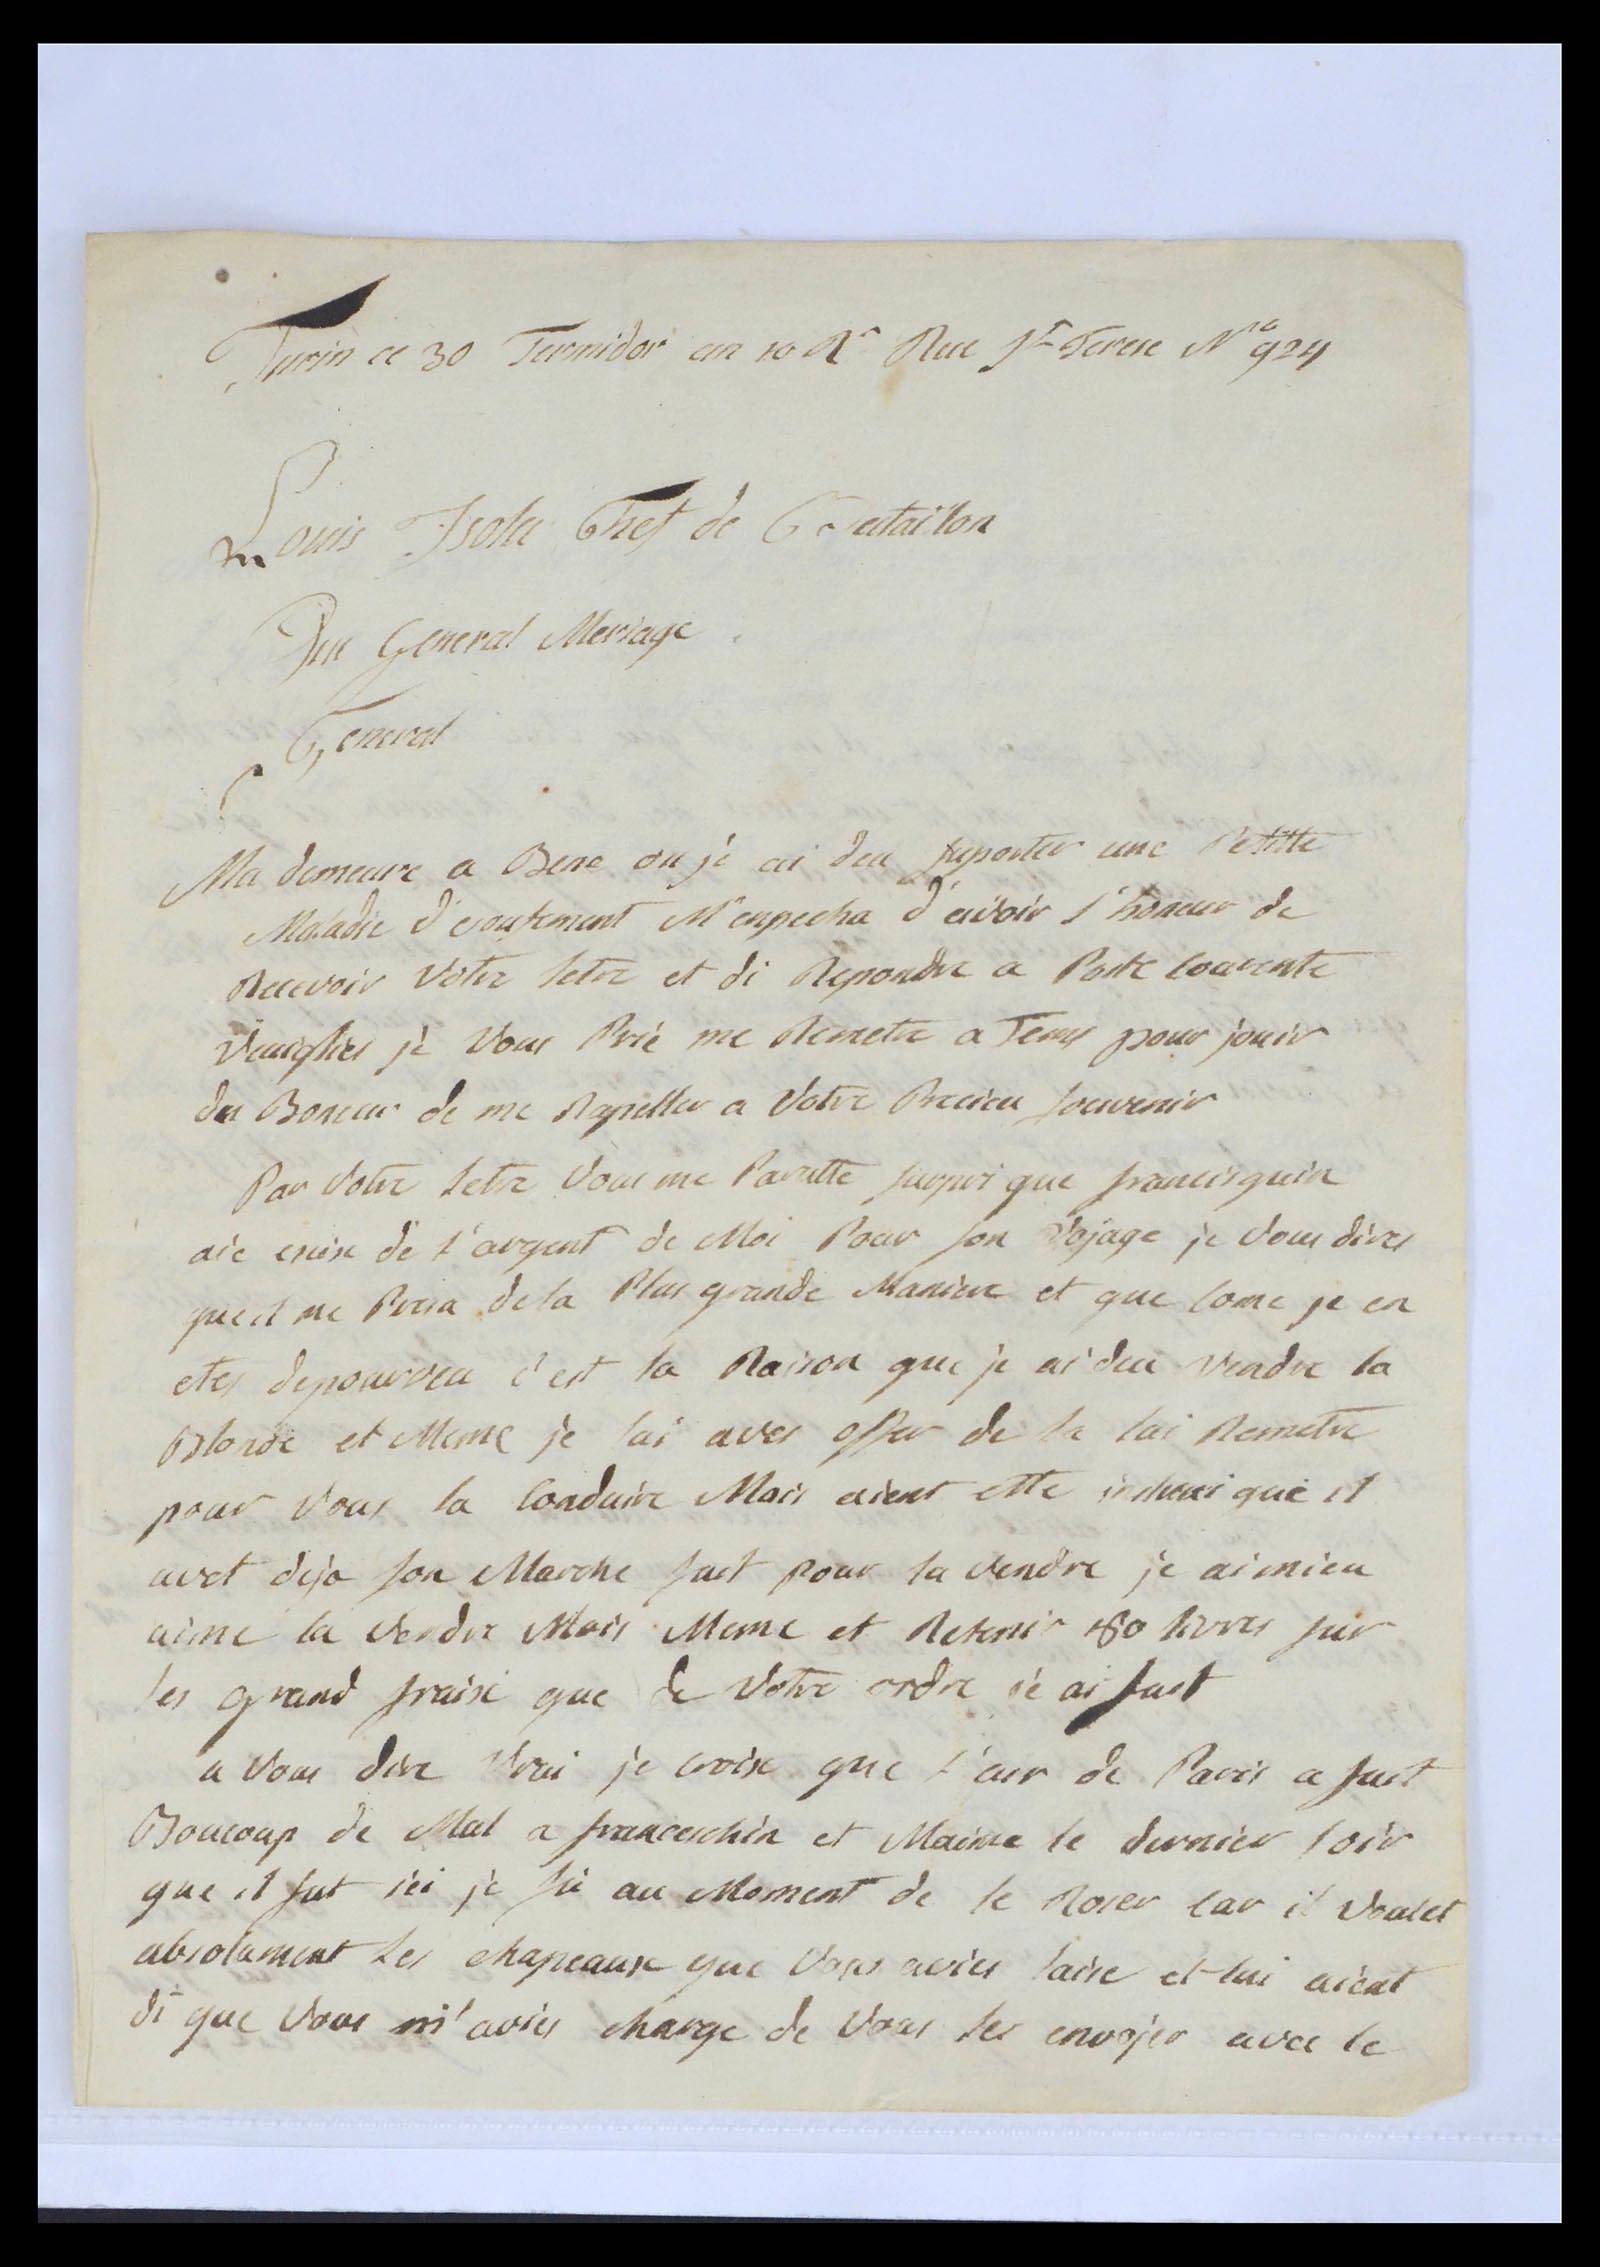 Turin ce 30 Termidor an 10 Rn Rue Ste Terese No 924
Louis Isola Chef de Bataillon
Au General Meriage
General
Ma demeure a Bene ou je ai deu suporter une Petitte
Maladie d' M'enpecha d'avoir l'honeur de
Recevoir Votre letre et di Repondre a Poste Courente
Veuiglies je Vous Prié me Remetre a Tems pour jouir
du Boneur de me Rapeller a Votre Precieu souvenir
Par Votre letre Vous me Parutte surpri que francisquin
aie exixe de l'argent de Moi Pour son Vojage je Vous dires
que il me Presa de la Plus grande Maniere et que come je en
etes depourveu c'est la Raison que je ai deu Vendre la
Blonde et Meme je lui aves offer de la lui Remetre
pour Vous la Conduire Mais aient ette que il
avet deja son Marche fait pour la vendre je ai mieu
aime la Vendre Mois Meme et Retenir 180 livres sur
les grand fraixe que de Votre ordre je ai fait
a Vous dire Vrai je croix que l'air de Paris a fait
Boucoup de Mal a franceschin et Maime le dernier soir
que il fut ici je fu au Moment de le Roser Car il Voulet
absolument les chapeaux que Vous avies laise et lui aient
di que Vous m'avies charge de Vous les envojer avec le